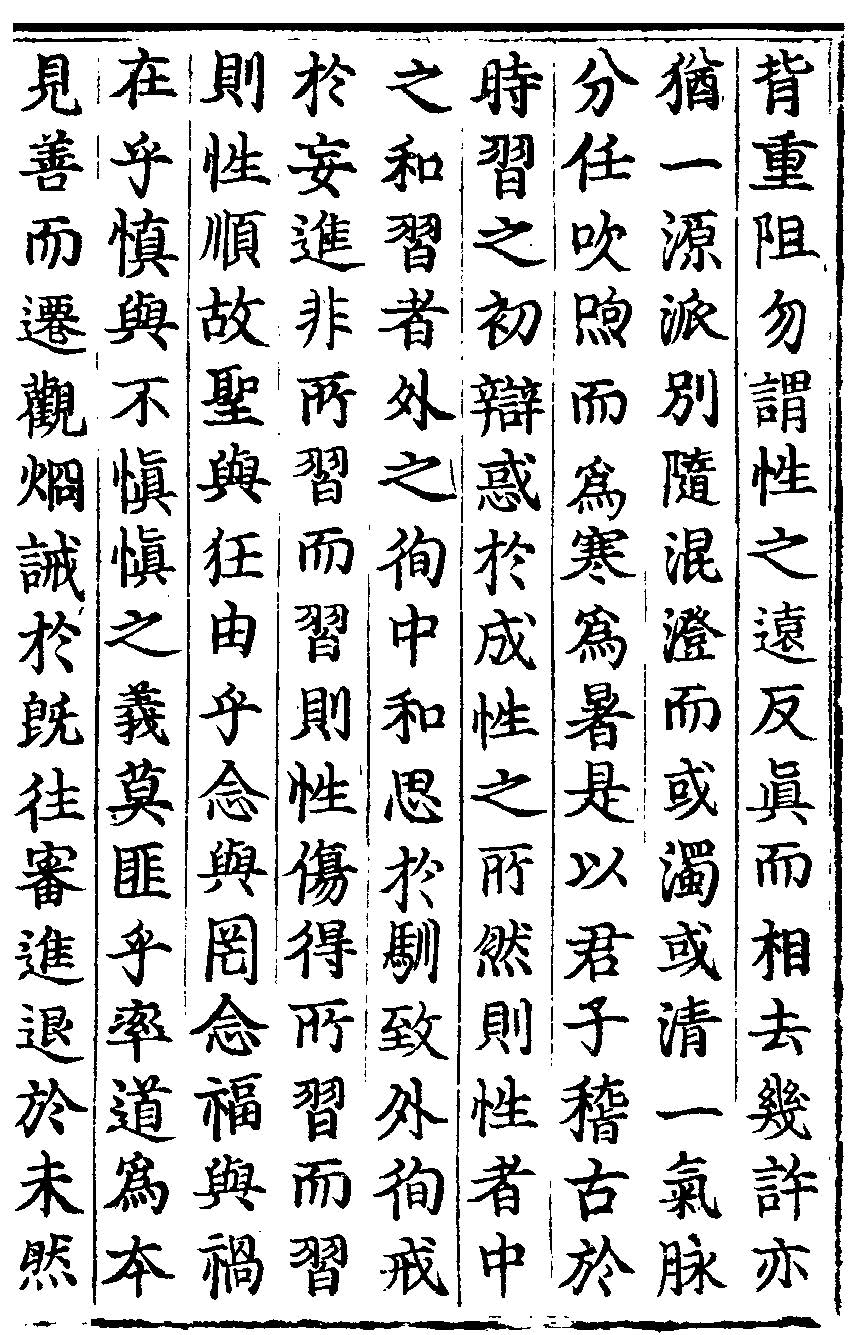 背重阻勿謂性之遠反眞而相去幾許亦
猶一源派別隨混澄而或濁或清一氣脉
分任吹煦而爲寒爲暑是以君子稽古於
時習之初辯惑於成性之所然則性者中
之和習者外之徇中和思於馴致外徇戒
於妄進非所習而習則性傷得所習而習
則性順故聖與狂由乎念與罔念福與禍
在乎慎與不慎慎之義莫匪乎率道爲本
見善而遷觀烱誡於既往審進退於未然